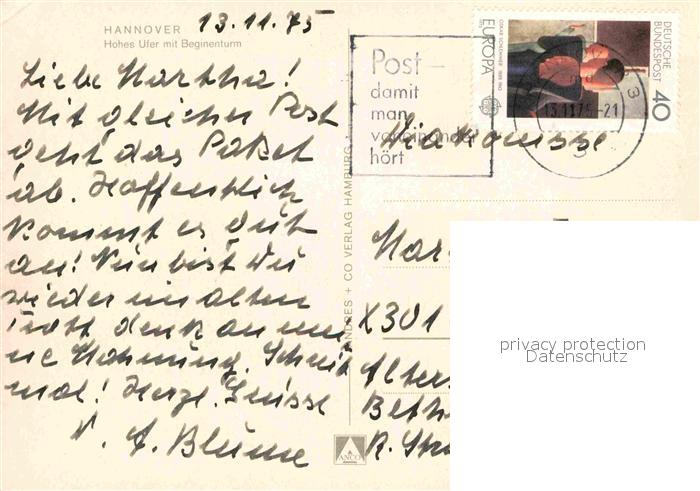 HANNOVER
Hohes Ufer mit Beginenturm
13.11.75
Liebe Martha!
Mit gleicher Post
geht das Paket
ab. Hoffentlich
kommt es gut
an! Nun bist Du
wieder im alten
Trott denk an mei
ne Mahnung. Schreib
mal! Herzl. Grüsse
A. Blume
ANDRES + CO VERLAG HAMBURG
ANCO
Post –
damit
man
voneinander
hört
EUROPA
OSKAR SCHLEMMER 1888-1943
DEUTSCHE
BUNDESPOST
40
13.11.75-21
3
Diakonisse
Mar
X301
Alters
Beth
R. Str
privacy protection
Datenschutz